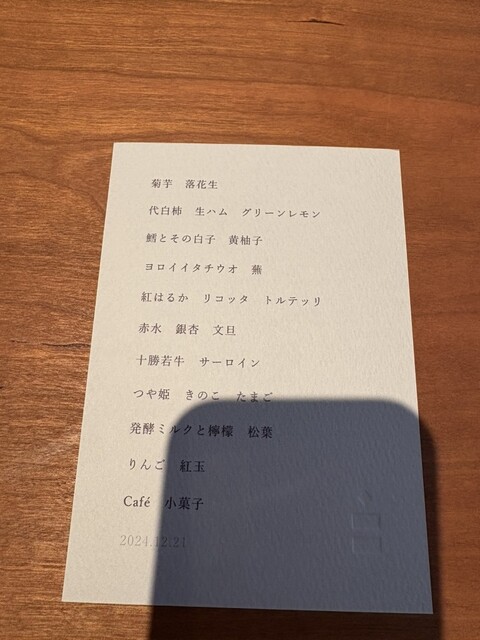 菊芋　落花生
代白柿　生ハム　グリーンレモン
鱈とその白子　黄柚子
ヨロイイタチウオ　蕪
紅はるか　リコッタ　トルテッリ
赤水　銀杏　文旦
十勝若牛　サーロイン
つや姫　きのこ　たまご
発酵ミルクと檸檬　松葉
りんご　紅玉
Café　小菓子
2024.12.21